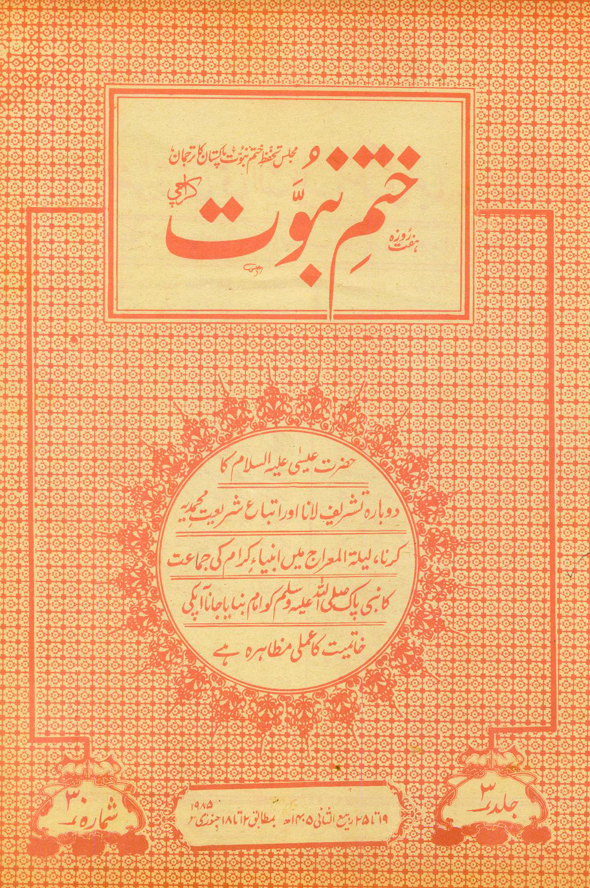 مجلس تحفظ ختم نبوت پاکستان کا ترجمان
ہفت روزہ
ختمِ نبوّت
کراچی
حضرت عیسیٰ علیہ السلام کا
دوبارہ تشریف لانا اور اتباع شریعت محمدیہ
کرنا، لیلۃ المعراج میں انبیاء کرام کی جماعت
کا نبی پاک صلی اللہ علیہ وسلم کو امام بنایا جانا آپکی
خاتمیت کا عملی مظاہرہ ہے
جلد ۳
شمارہ ۳۰
۱۹ تا ۲۵ ربیع الثانی ۱۴۰۵ھ بمطابق ۱۲ تا ۱۸ جنوری ۱۹۸۵